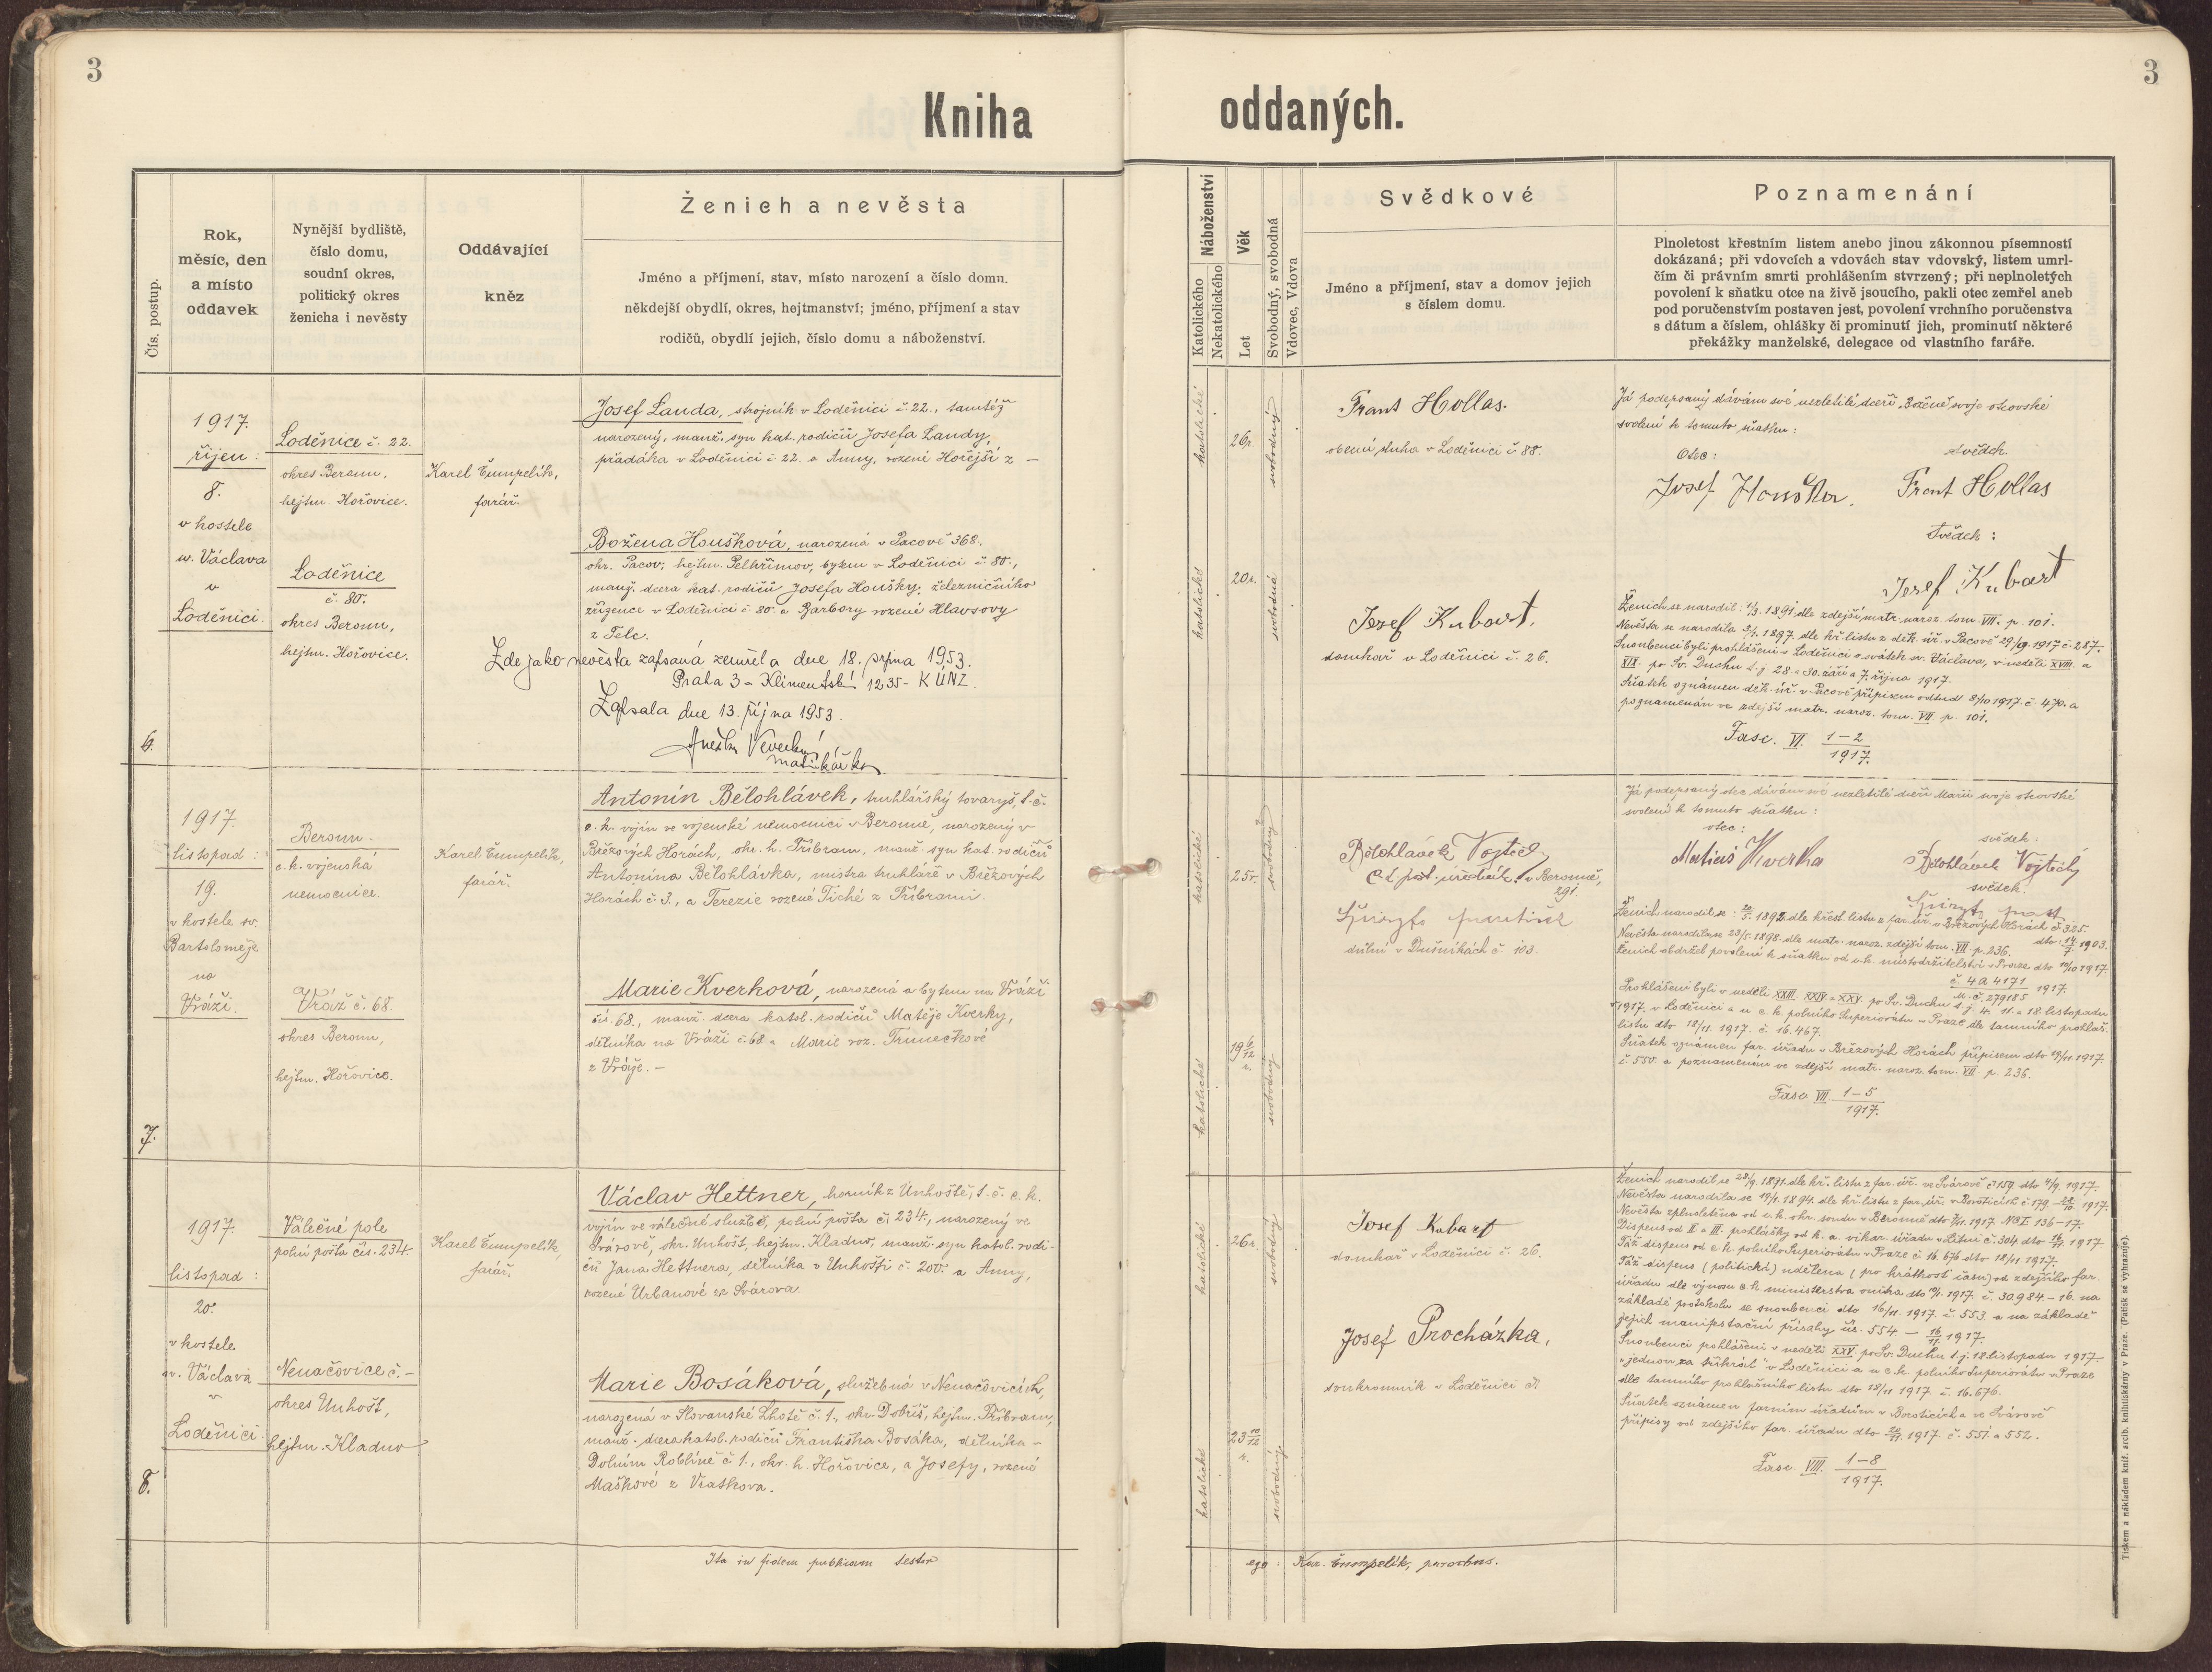 3
3
Kniha oddaných.
Čís. postup.
Rok,
měsíc, den
a místo
oddavek
Nynější bydliště,
číslo domu,
soudní okres,
politický okres
ženicha i nevěsty
Oddávající
kněz
Ženich a nevěsta
Jméno a příjmení, stav, místo narození a číslo domu.
někdejší obydlí, okres, hejtmanství; jméno, příjmení a stav
rodičů, obydlí jejich, číslo domu a náboženství.
Náboženství
Katolického
Nekatolického
Věk
Let
Svobodný, svobodná
Vdovec, Vdova
Svědkové
Jméno a příjmení, stav a domov jejich
s číslem domu.
Poznamenání
Plnoletost křestním listem anebo jinou zákonnou písemností
dokázaná; při vdovcích a vdovách stav vdovský, listem umrl-
čím či právním smrti prohlášením stvrzený; při neplnoletých
povolení k sňatku otce na živě jsoucího, pakli otec zemřel aneb
pod poručenstvím postaven jest, povolení vrchního poručenstva
s dátum a číslem, ohlášky či prominutí jich, prominutí některé
překážky manželské, delegace od vlastního faráře.
6.
1917.
říjen:
8.
v kostele
sv. Václava
v
Loděnici.
Loděnice č. 22.
okres Beroun,
hejtm. Hořovice.
Loděnice
č. 80.
okres Beroun,
hejtm. Hořovice.
Karel Čumpelík,
farář.
Josef Landa, strojník v Loděnici č. 22., tamtéž
narozený, manž. syn kat. rodičů Josefa Landy,
přadáka v Loděnici č. 22. a Anny, rozené Hořejší z –
Božena Houšková, narozená v Pacově 368.,
okr. Pacov, hejtm. Pelhřimov, bytem v Loděnici č. 80.,
manž. dcera kat. rodičů Josefa Houšky, železničního
zřízence v Loděnici č. 80. a Barbory rozené Hlavsovy
z Telc.
Zde jako nevěsta zapsaná zemřela dne 18. srpna 1953.
Praha 3 – Klimentská 1235 – KÚNZ.
Zapsala dne 13. října 1953.
matrikářka
katolické
26r.
svobodný
katolické
20r.
svobodná
Frant Hollas.
obecní sluha v Loděnici č 88.
Josef Kubart,
domkař v Loděnici č. 26.
Já podepsaný dávám své nezletilé dceři Boženě svoje otcovské
svolení k tomuto sňatku:
Otec:
svědek.
Josef Houška.
Frant Hollas
Svědek:
Josef Kubart
Ženich se narodil: 1/3. 1891. dle zdejší matr. naroz. tom. VII. p. 101.
Nevěsta se narodila 5/1. 1897. dle kř. listu z děk. úř. v Pacově 29/9. 1917 č. 287.
Snoubenci byli prohlášeni v Loděnici o svátek sv. Václava, v neděli XVIII. a
XIX. po Sv. Duchu t. j. 28. a 30. září a 7. října 1917.
Sňatek oznámen děk. úř. v Pacově přípisem odtud 8/10 1917. č. 470. a
poznamenán ve zdejší matr. naroz. tom. VII. p. 101.
Fasc. VI. 1–2
1917.
7.
1917.
listopad:
19.
v kostele sv.
Bartoloměje
na
Vráži.
Beroun –
c. k. vojenská
nemocnice.
Vráž č. 68.
okres Beroun,
hejtm. Hořovice.
Karel Čumpelík,
farář.
Antonín Bělohlávek, truhlářský tovaryš, t. č.
c. k. vojín ve vojenské nemocnici v Berouně, narozený v
Březových Horách, okr. h. Příbram, manž. syn kat. rodičů
Antonína Bělohlávka, mistra truhláře v Březových
Horách č. 3., a Terezie rozené Tiché z Příbrami.
Marie Kverková, narozená a bytem na Vráži
čís. 68., manž. dcera katol. rodičů Matěje Kverky,
dělníka na Vráži č. 68 a Marie roz. Trunečkové
z Vráže. –
katolické
25r.
svobodný
katolické
19 6/12
r.
svobodný
Bělohlávek Vojtěch
v Berouně,
291.
Špinzta František
důlní v Dušníkách č. 103.
Já podepsaný otec dávám své nezletilé dceři Marii svoje otcovské
svolení k tomuto sňatku:
otec:
svědek:
Matěas Kverka
Bělohlávek Vojtěch
svědek:
Ženich narodil se: 1892. dle křest. listu z far. úř. v Březových Horách č. 325.
dto 14/7 1903.
Nevěsta narodila se 23/5. 1898. dle matr. naroz. zdejší tom. VII. p. 236.
Ženich obdržel povolení k sňatku od c. k. místodržitelství v Praze dto 10/10 1917.
č. 4a 4171
M. č. 279185 1917.
Prohlášeni byli v neděli XXIII. XXIV. a XXV. po Sv. Duchu t. j. 4. 11. a 18. listopadu
1917. v Loděnici a u c. k. polního Superiorátu v Praze dle tamního prohláš.
listu dto 18/11. 1917. č. 16.467.
Sňatek oznámen far. úřadu v Březových Horách přípisem dto 19/11. 1917.
č. 550. a poznamenán ve zdejší matr. naroz. tom. VII. p. 236.
Fasc VIII. 1–5
1917.
8.
1917.
listopad:
20.
v kostele
sv. Václava
v
Loděnici.
Válečné pole
polní pošta čís. 234.
Nenačovice č. –
okres Unhošť,
hejtm. Kladno
Karel Čumpelík,
farář.
Václav Hettner, horník z Unhoště, t. č. c. k.
vojín ve válečné službě, polní pošta č. 234., narozený ve
Svárově, okr. Unhošť, hejtm. Kladno, manž. syn katol. rodi-
čů Jana Hettnera, dělníka v Unhošti č. 200. a Anny,
rozené Urbanové ze Svárova.
Marie Bosáková, služebná v Nenačovicích,
narozená v Slovanské Lhotě č. 1., okr. Dobříš, hejtm. Příbram,
manž. dcera katol. rodičů Františka Bosáka, dělníka –
Dolním Roblíně č 1., okr. h. Hořovice, a Josefy, rozené
Maškové z Vratkova.
katolické
26r.
svobodný
katolické
23 10/12
r.
svobodný
Josef Kubart
domkař v Loděnici č. 26.
Josef Procházka,
soukromník v Loděnici
Ženich narodil se 28/9. 1891. dle kř. listu z far. úř. ve Svárově č 159 dto 4/9. 1917.
Nevěsta narodila se 19/1. 1894. dle kř. listu z far. úř. v Boroticích č 179 1917.
Nevěsta zplnoletěna od c. k. okr. soudu v Berouně dto 1917. Nc I 136–17.
Dispens od II. a III. prohlášky od k. a. vikar. úřadu v Litni č. 304 dto 16/11. 1917
Táž dispens od c. k. polního Superiorátu v Praze č. 16.676 dto 18/11 1917.
Táž dispens (politická) udělena (pro krátkost času) od zdejšího far.
úřadu dle výnosu c. k. ministerstva vnitra dto 1917. č. 30984 – 16. na
základě protokolu se snoubenci dto 16/11. 1917. č. 553. a na základě
jejich manifestační přísahy čís. 554 – 16/11. 1917.
Snoubenci prohlášeni v neděli XXV. po Sv. Duchu t. j. 18. listopadu 1917.
„jednou za třikrát" v Loděnici a u c. k. polního Superiorátu v Praze
dle tamního prohlašního listu dto 18/11 1917 č. 16.676.
Sňatek oznámen farním úřadům v Boroticích a ve Svárově
přípisy od zdejšího far. úřadu dto 20/11. 1917 č. 551 a 552.
Fasc. VIII. 1–8
1917.
Ita in fidem publicam testor
ego: Kar. Čumpelík, parochus.
Tiskem a nákladem kníž. arcib. knihtiskárny v Praze. (Patisk se vyhrazuje).